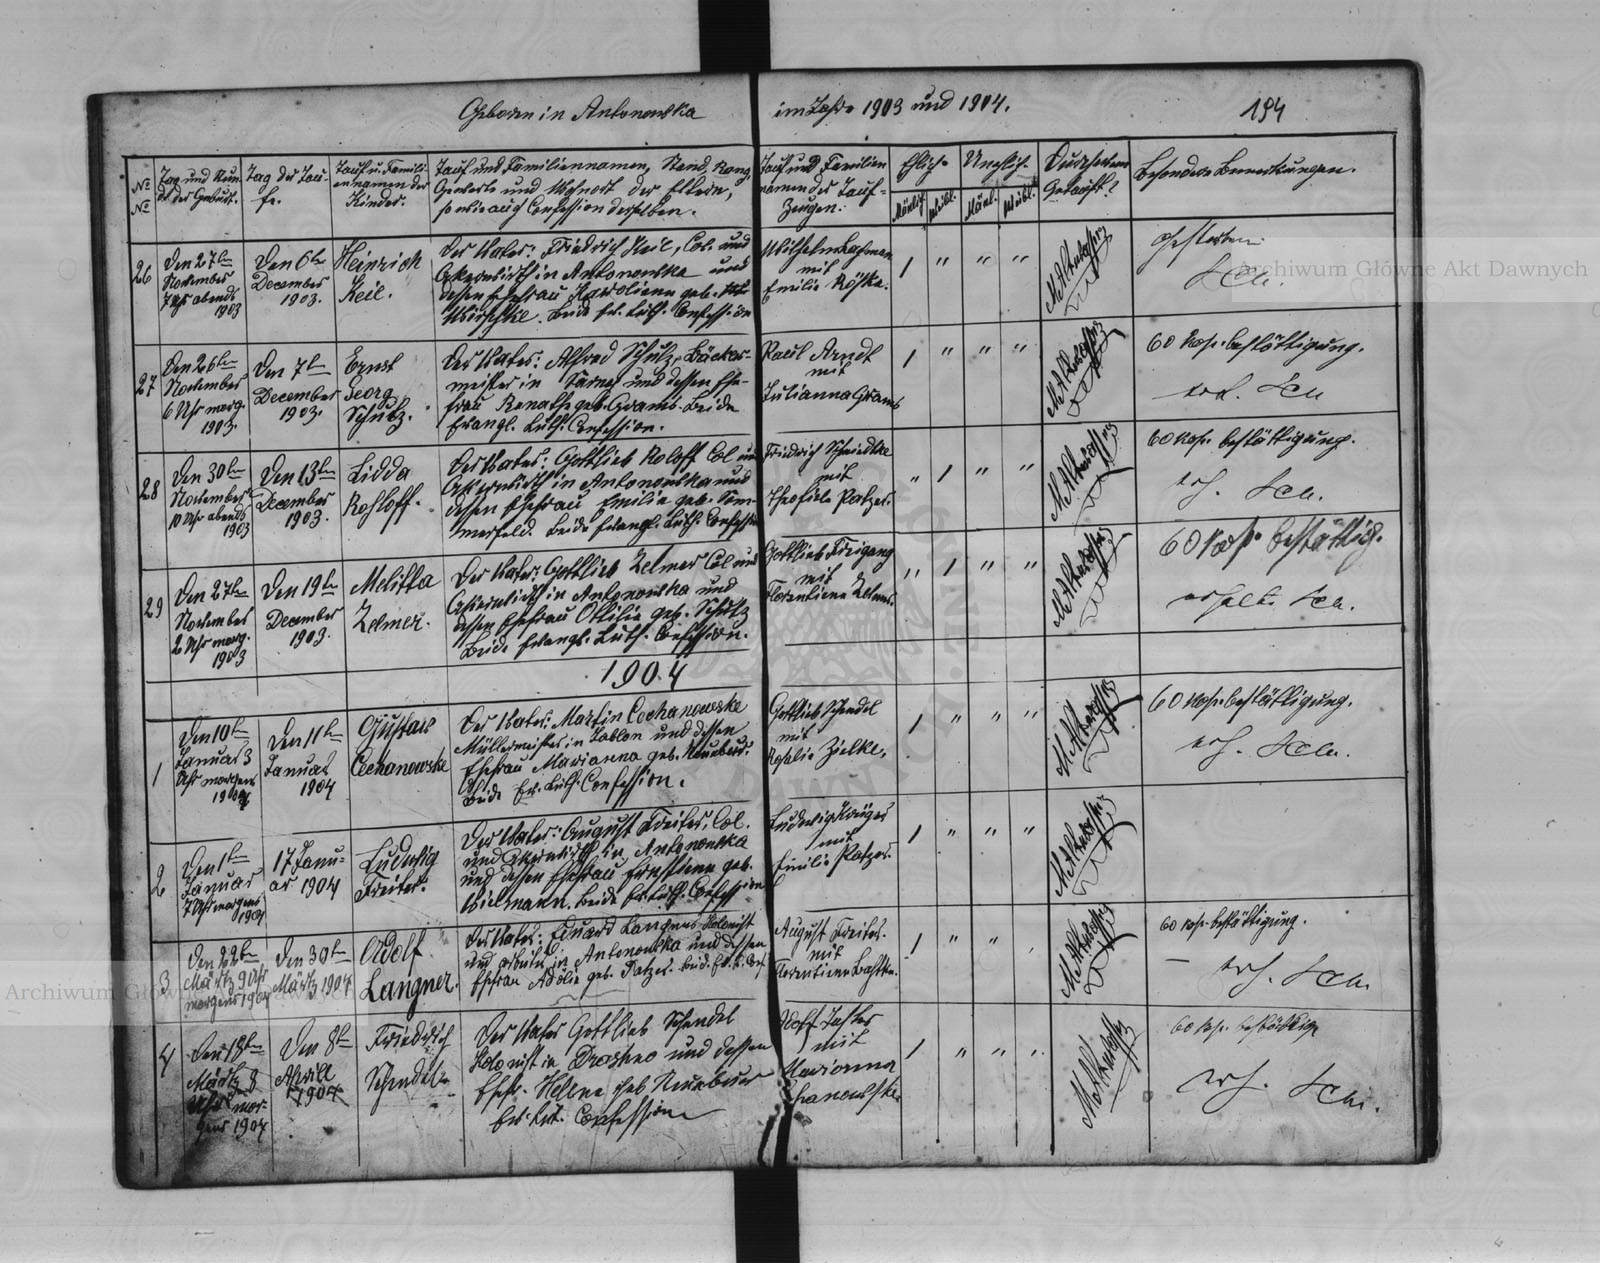 Geboren in Antonowka im Jahre 1903 und 1904. 194
№ №
Tag und Stunde der Geburt.
Tag der Taufe.
Tauf u. Familiennamen der Kinder.
Tauf und Familiennamen, Stand, Rang,
Gewerbe und Wohnort der Eltern,
sowie auch Confession derselben.
Tauf und Familien
namen der Tauf-
Zeugen.
Ehlich.
Unehlich.
Mänlich
Weibl.
Mänl.
Weibl.
Durch wen
Getauft?
Besondere Bemerkungen.
26
Den 27ten
November
7 Uhr abends
1903
Den 6ten
December
1903.
Heinrich
Keil.
Der Vater: Friedrich Keil, Col. und
Ackerwirth in Antonowka und
dessen Ehefrau Karoline geb.
Beide Ev. Luth. Confession
Wilhelm
mit
Emilie Röske.
Gestorben
Sch.
27
Den 26ten
November
6 Uhr morg.
1903.
Den 7ten
December
1903.
Ernst
Georg
Schulz.
Der Vater: Alfred Schulz, Bäcker-
meister in Sarney und dessen Ehe-
frau Renathe geb. Grams. Beide
Evangl. Luth. Confession.
Paul Arndt
mit
Julianna Grams
60 Kop. bestättigung.
erh. Sch
28
Den 30ten
November
10 Uhr abends
1903
Den 13ten
December
1903.
Lidda
Rohloff.
Der Vater: Gottlieb Roloff Col und
Ackerwirth in Antonowka und
dessen Ehefrau Emilie geb. Som-
merfeld. Beide Evangl. Luth. Confession
Friedrich Schmidtke
mit
Theofiele Patzer.
60 Kop. bestättigung.
erh. Sch.
29
Den 27ten
November
2 Uhr morg.
1903
Den 19ten
December
1903.
Melitta
Zelmer.
Der Vater: Gottlieb Zelmer Col und
Ackerwirth in Antonowka und
dessen Ehefrau Ottilie geb. Schulz
Beide Evangl. Luth. Confession.
Gottlieb Freigang
mit
Florentiene Zelmer.
60 Kop. bestättig.
erhalten Sch.
1904
1
Den 10ten
Januar 3
Uhr morgens
1904
Den 11ten
Januar
1904
Gustaw
Cochanowske
Der Vater: Martin Cochanowske
Müllermeister in Jablon und dessen
Ehefrau Marianna geb. Neubaur.
Beide Ev. Luth. Confession.
Gottlieb Schendel
mit
Rosalie Zielke.
60 Kop. bestättigung.
erh. Sch.
2
Den 1ten
Januar
7 Uhr morgens
1904
17 Janu-
ar 1904
Ludwig
Freiter.
Der Vater: August Freiter, Col.
und Ackerwirth in Antonowka
und dessen Ehefrau Ernstiene geb.
Wielmann. Beide Ev. Luth. Confession
Ludwig Krüger
mit
Emilie Patzer.
3
Den 22ten
Märtz 9 Uhr
morgens 1904
Den 30ten
Märtz 1904
Adolf
Langner.
Der Vater: Eduard Langner Kolonist
und arbeiter in Antonowka und dessen
Ehefrau Adolie geb. Patzer. Beid. Ev. L. Conf.
August Freiter.
mit
Florentiene
60 Kop. bestättigung.
erh. Sch.
4
Den 18ten
Märtz 8
Uhr mor-
gens 1904
Den 8ten
Aprill
1904
Friedrich
Schendel.
Der Vater Gottlieb Schendel
Kolonist in und dessen
Ehefr. Helene geb Neubaur
Ev. Lut. Confession
Adolf Jaster
mit
Marianna
60 Kop. bestättig
erh. Sch.
Archiwum Główne Akt Dawnych
Archiwum Główne Akt Dawnych